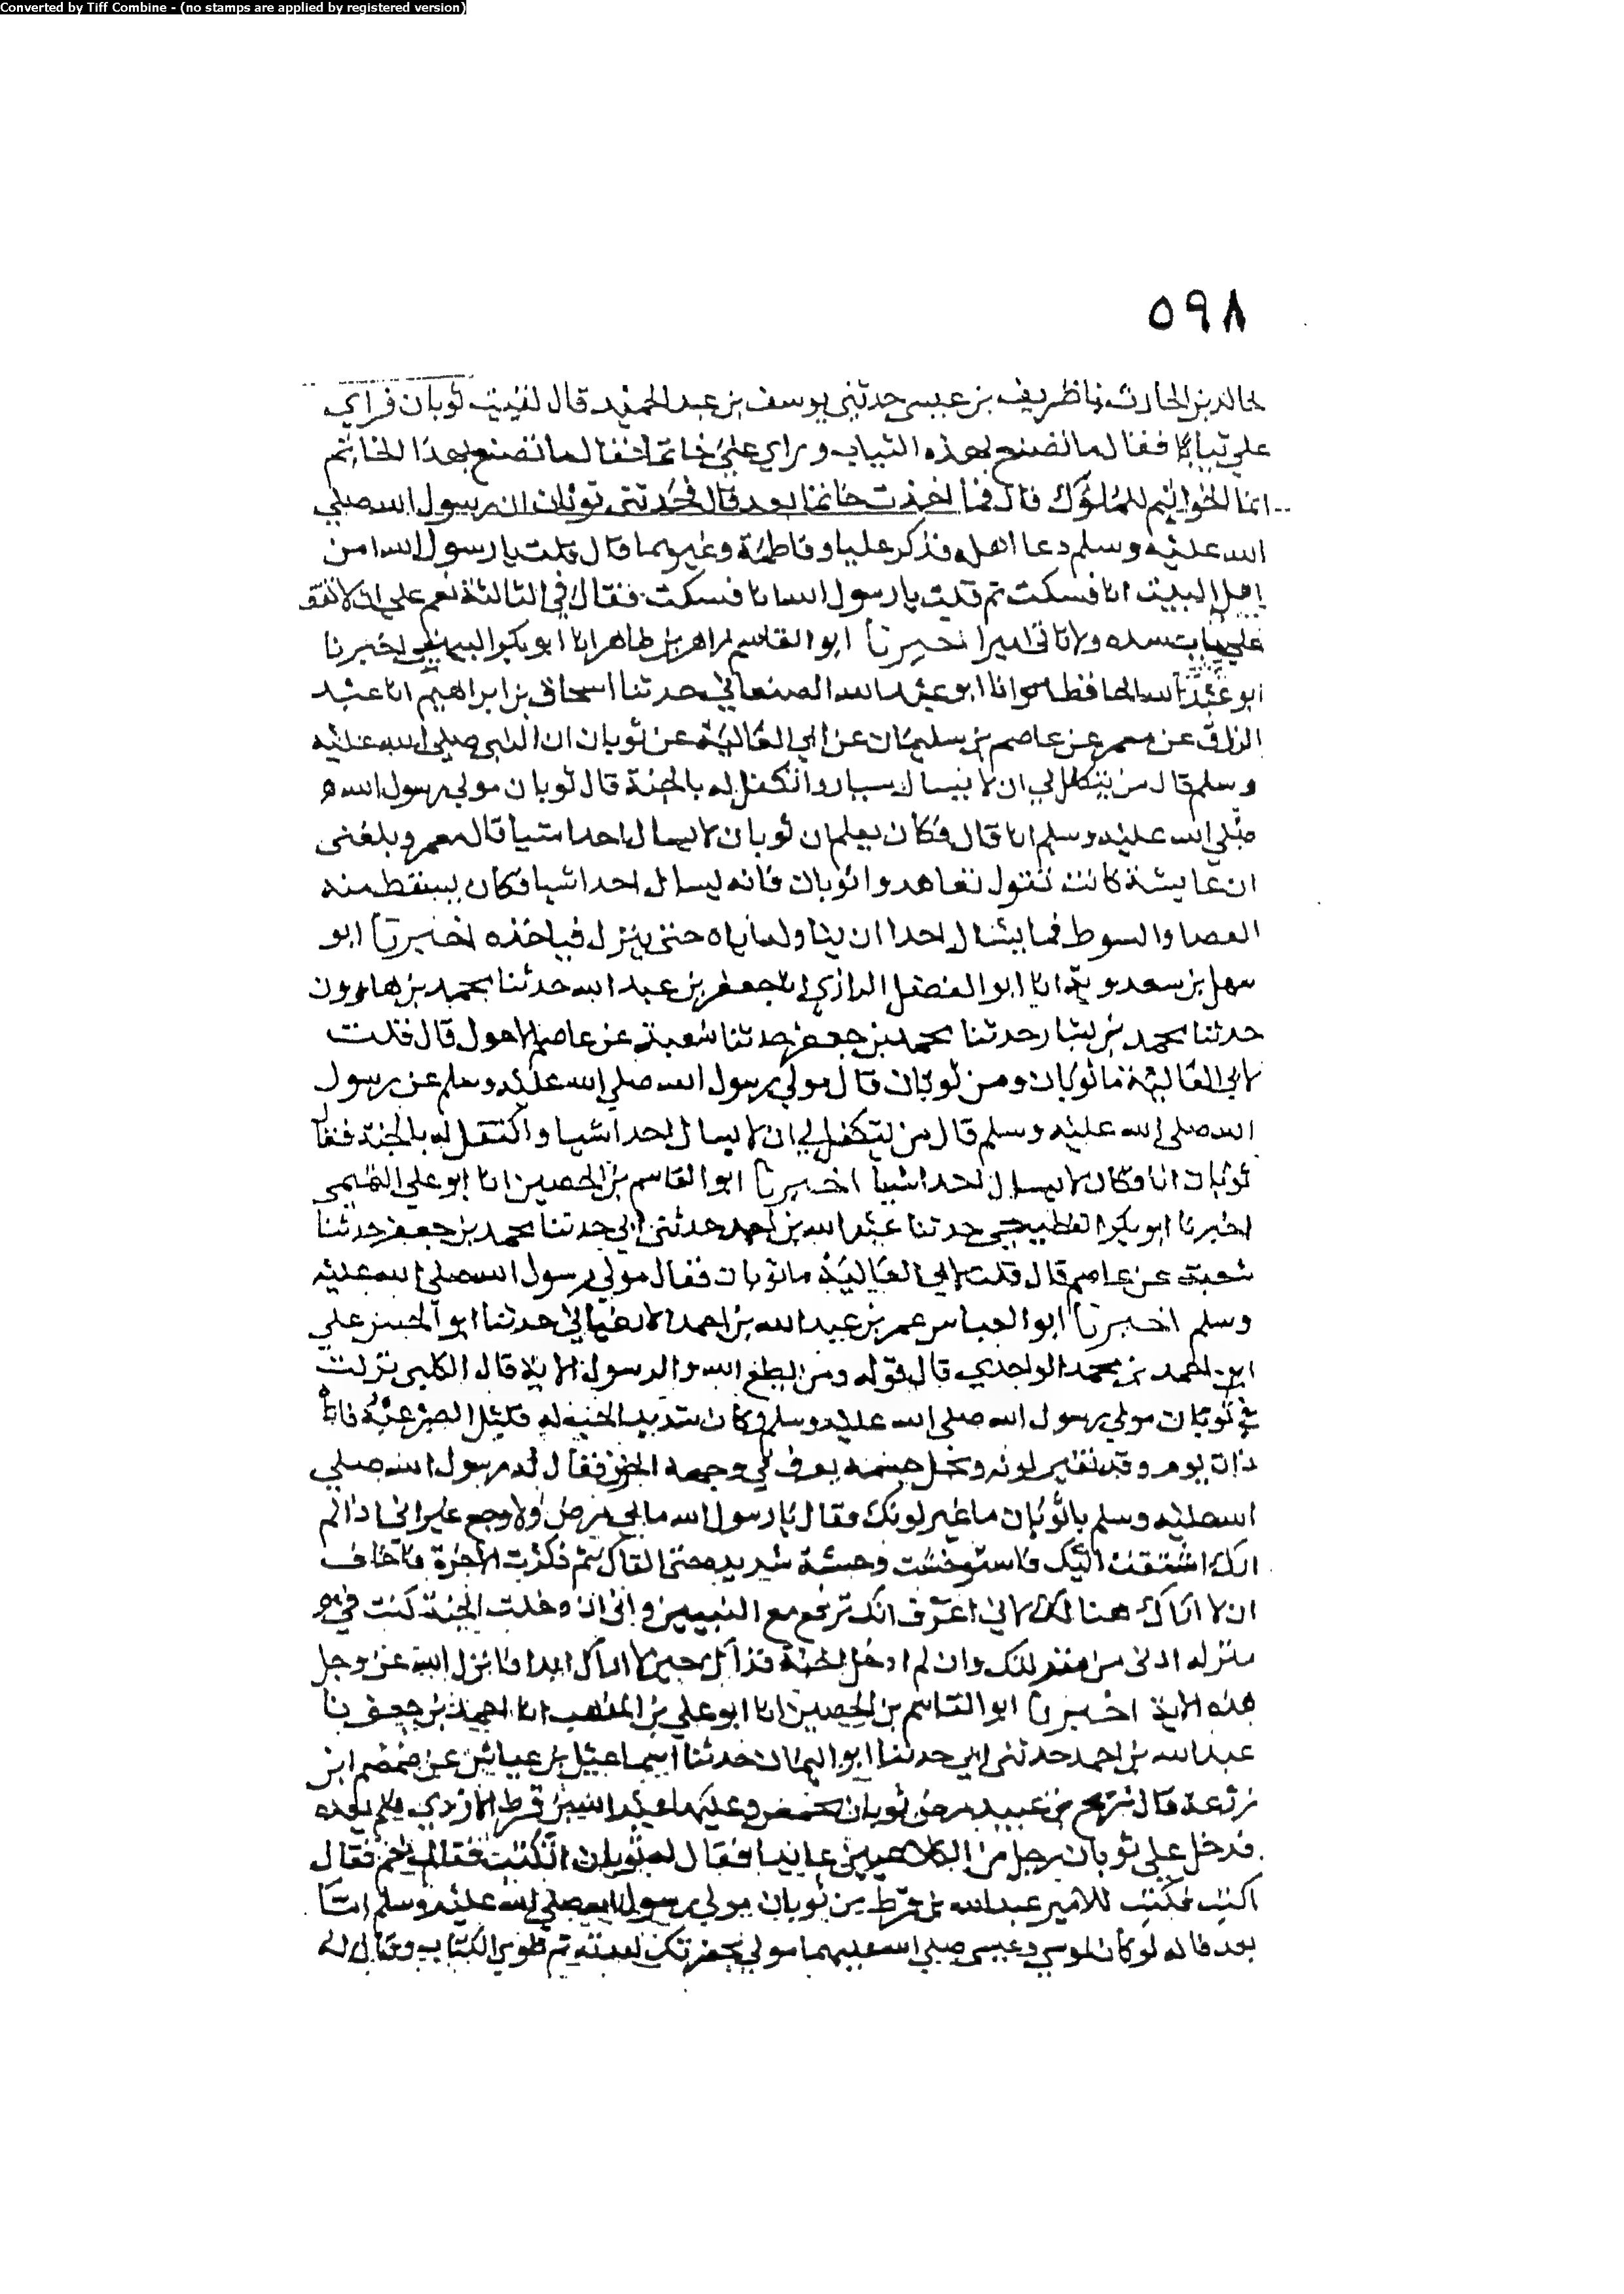 Converted by Tiff Combine - (no stamps are applied by registered version)
٥٩٨
خالد بن الحارث نا ظريف بن عيسى حدثني يوسف بن عبد الحميد قال لقيت ثوبان فراي
علي ثيابا فقال ما تصنع بهذه الثياب وراي علي خاتما فقال ما تصنع بهذا الخاتم
انما الخواتيم للملوك قال فما اخذت خاتما بعد قال فحدثني ثوبان ان رسول الله صلي
الله عليه وسلم دعا اهله فذكر عليا وفاطمة وغيرهما قال قلت يا رسول الله امن
اهل البيت انا فسكت ثم قلت يا رسول الله انا فسكت فقال في الثالثة نعم علي ان لا تقف
علي باب سده ولا تاتي اميرا اخبرنا ابو القاسم زاهر بن طاهر انا ابو بكر البيهقي اخبرنا
ابو عبد الله الحافظ انا ابو عبد الله الصنعاني حدثنا اسحاق بن ابراهيم انا عبد
الرزاق عن معمر عن عاصم بن سليمان عن ابي العالية عن ثوبان ان النبي صلي الله عليه
وسلم قال من يتكفل لي ان لا يسال شيا واتكفل له بالجنة قال ثوبان مولي رسول الله
صلي الله عليه وسلم انا قال فكان يعلم ان ثوبان لا يسال احدا شيا قال معمر وبلغني
ان عايشة كانت تقول تعاهدوا ثوبان فانه لا يسال احدا شيا فكان يسقط منه
العصا والسوط فما يسال احدا ان يناوله اياه حتى ينزل فياخذه اخبرنا ابو
سهل بن سعدويه انا ابو الفضل الرازي انا جعفر بن عبد الله حدثنا محمد بن هارون
حدثنا محمد بن بشار حدثنا محمد بن جعفر حدثنا شعبة عن عاصم الاحول قال قلت
لابي العالية ما ثوبان ومن ثوبان قال مولي رسول الله صلي الله عليه وسلم عن رسول
الله صلي الله عليه وسلم قال من يتكفل لي ان لا يسال احدا شيا واتكفل له بالجنة فقال
ثوبان انا فكان لا يسال احدا شيا اخبرنا ابو القاسم بن الحصين انا ابو علي التميمي
اخبرنا ابو بكر القطيعي حدثنا عبد الله بن احمد حدثني ابي حدثنا محمد بن جعفر حدثنا
شعبة عن عاصم قال قلت لابي العالية ما ثوبان فقال مولي رسول الله صلي الله عليه
وسلم اخبرنا ابو العباس عمر بن عبد الله بن احمد الارغياني حدثنا ابو الحسن علي
ابن احمد بن محمد الواحدي قال قوله ومن يطع الله والرسول الاية قال الكلبي نزلت
في ثوبان مولي رسول الله صلي الله عليه وسلم وكان شديد الحب له قليل الصبر عنه فاتاه
ذات يوم وقد تغير لونه ونحل جسمه يعرف في وجهه الحزن فقال له رسول الله صلي
الله عليه وسلم يا ثوبان ما غير لونك فقال يا رسول الله ما بي مرض ولا وجع غير اني اذا لم
ارك اشتقت اليك فاستوحشت وحشة شديدة حتى القاك ثم ذكرت الاخرة فاخاف
ان لا اراك هنالك لاني اعرف انك ترفع مع النبيين واني ان دخلت الجنة كنت في
منزلة ادنى من منزلتك وان لم ادخل الجنة فذاك حين لا اراك ابدا فانزل الله عز وجل
هذه الاية اخبرنا ابو القاسم بن الحصين انا ابو علي بن المذهب انا احمد بن جعفر نا
عبد الله بن احمد حدثني ابي حدثنا ابو اليمان حدثنا اسماعيل بن عياش عن ضمضم ابن
زرعة قال شريح بن عبيد مرض ثوبان بحمص وعليها عبد الله بن قرط الازدي فلم يعده
فدخل علي ثوبان رجل من الكلاعيين عايدا فقال له ثوبان اتكتب فقال نعم فقال
اكتب فكتب للامير عبد الله بن قرط من ثوبان مولي رسول الله صلي الله عليه وسلم اما
بعد فانه لو كان لموسي وعيسى صلي الله عليهما مولي بحضرتك لعدته ثم طوي الكتاب وقال له